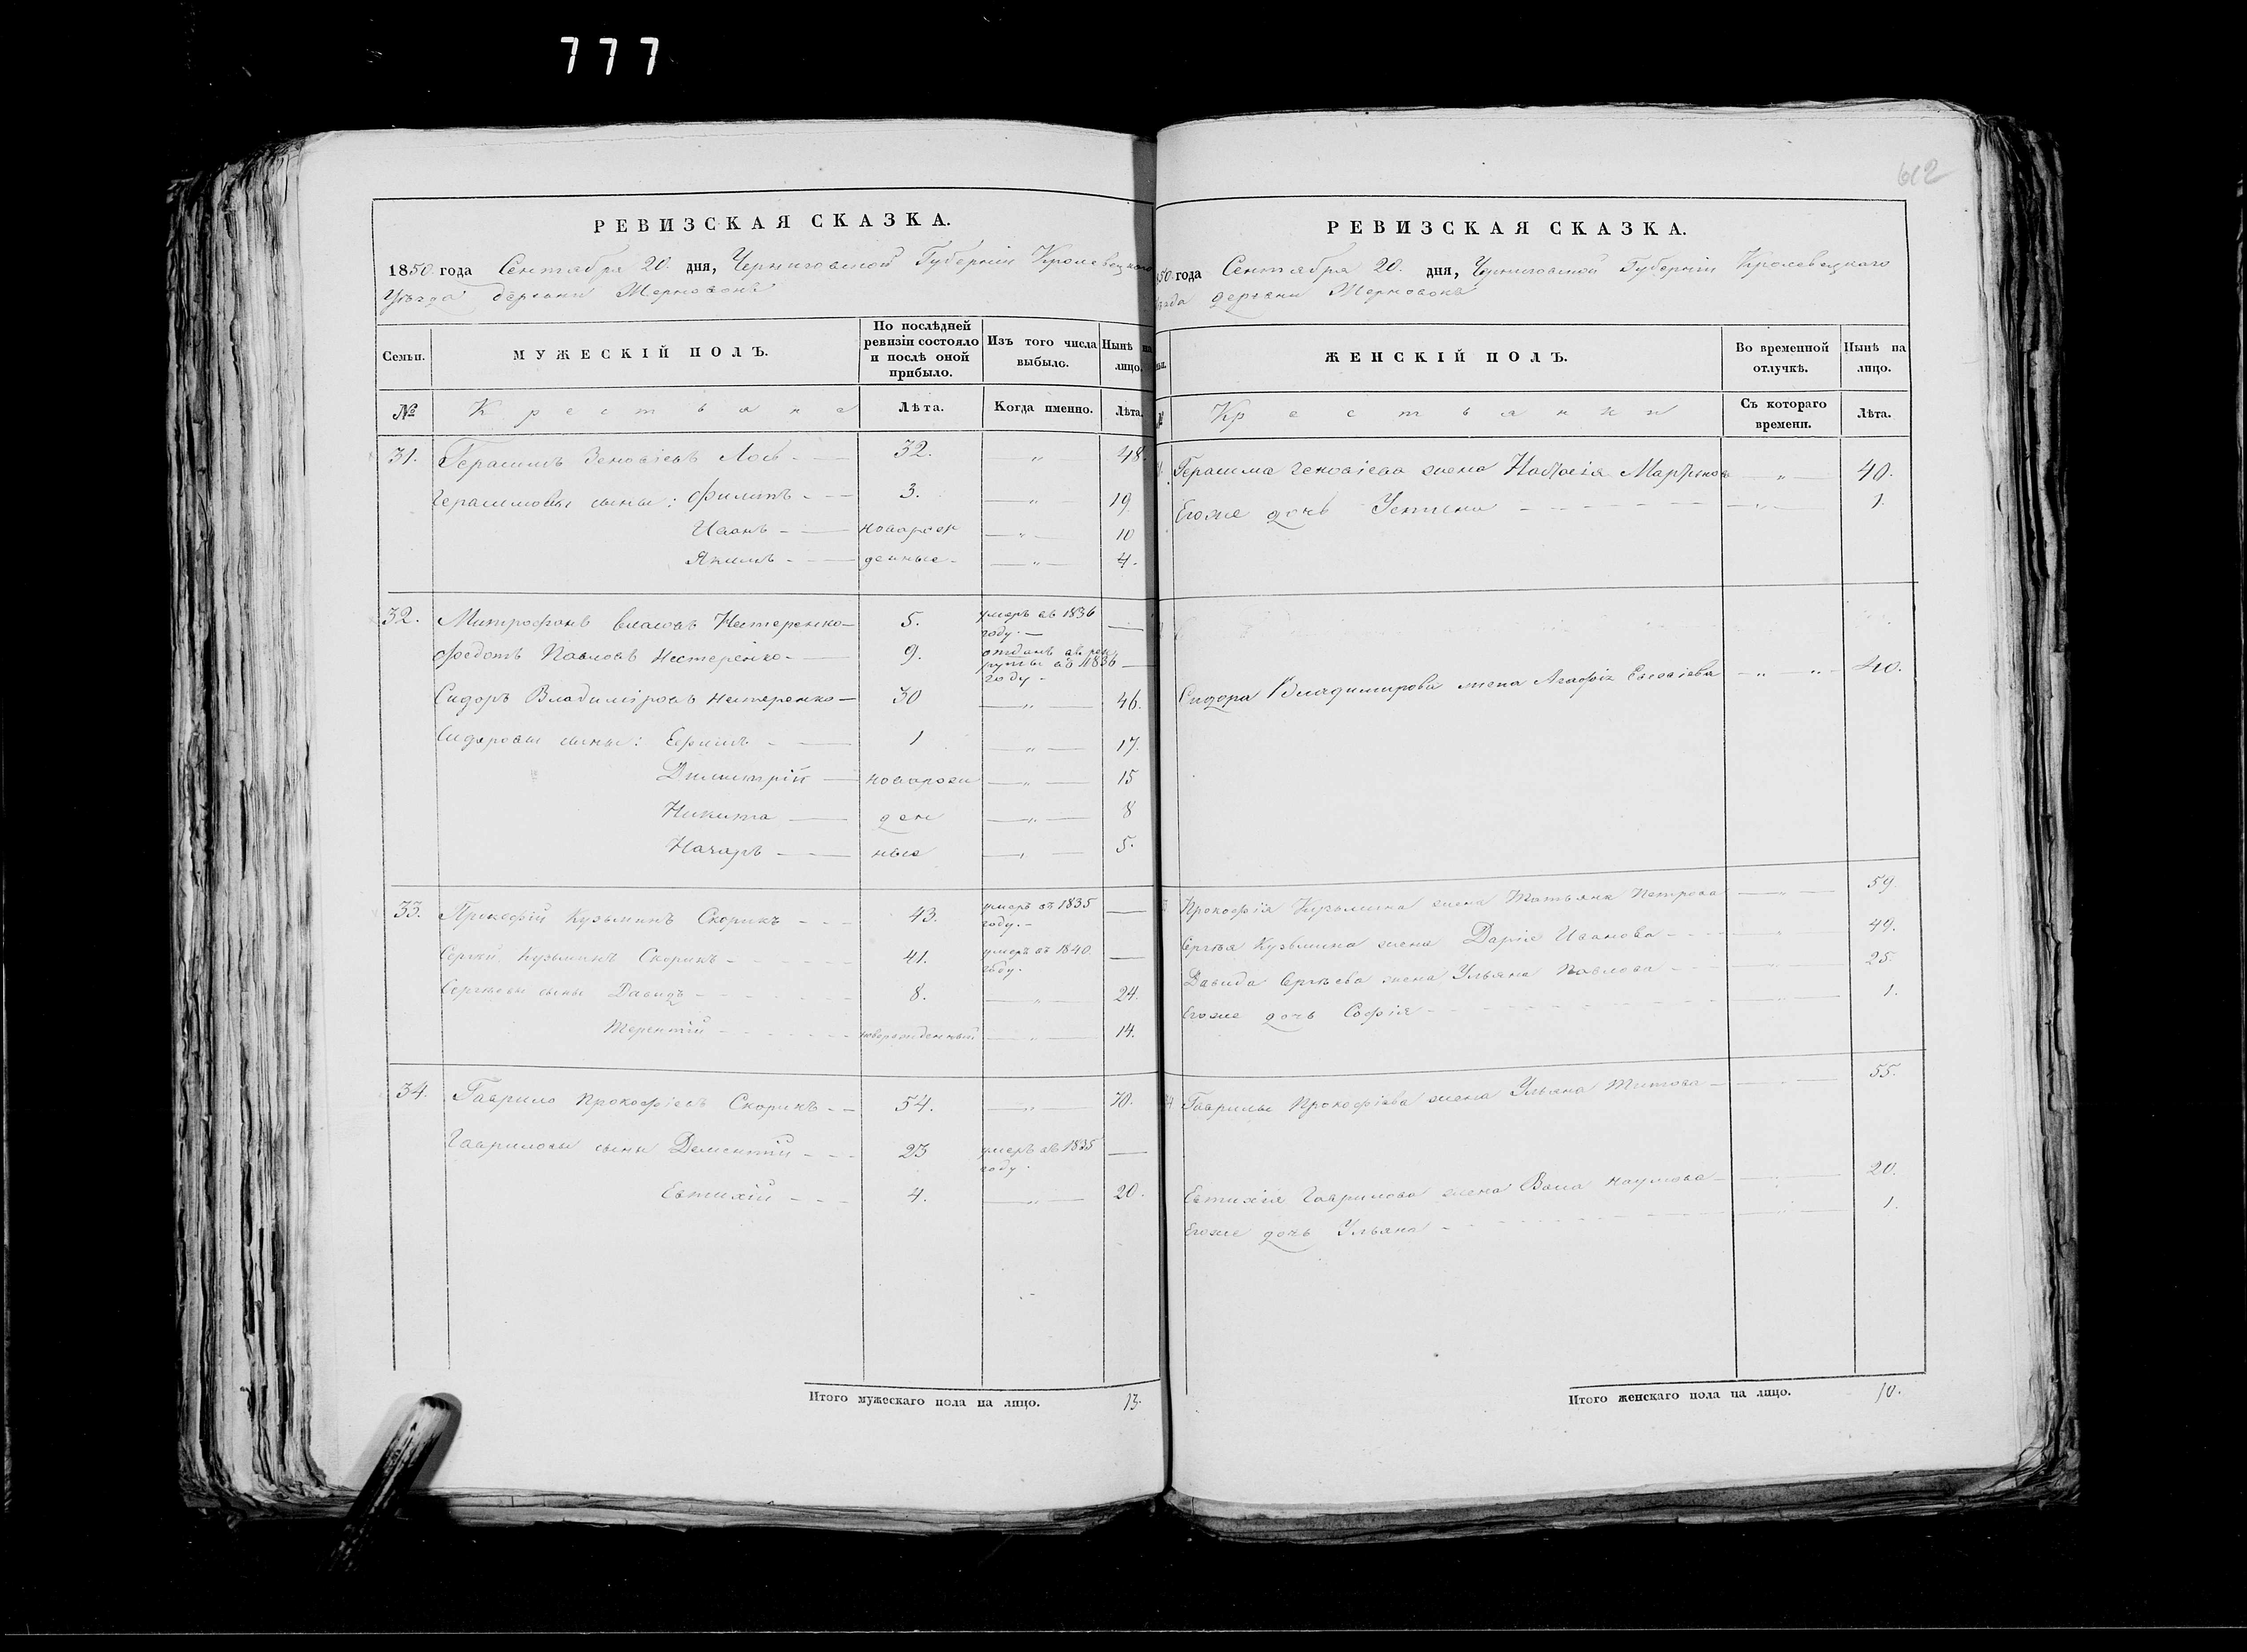 777
612
РЕВИЗСКАЯ СКАЗКА.
1850 года Сентября 20. дня, Черниговской Губерніи Кролевецкаго
Уѣзда деревни
Семьи.
МУЖЕСКІЙ ПОЛЪ.
По послѣдней ревизіи состояло и послѣ оной прибыло.
Изъ того числа выбыло.
Нынѣ на лицо.
№
Крестьяне
Лѣта.
Когда именно.
Лѣта.
31. Герасимъ Зеновіевъ Лось - 32. " 48.
Герасимовы сыны: Филипъ - 3. " 19.
Иванъ - новорож " 10
Якимъ - денные - " 4.
32. Митрофанъ Власовъ Нестеренко - 5. умеръ въ 1836 году. —
Федотъ Павловъ Нестеренко - 9. отданъ въ рекруты въ 1836 году - —
Сидоръ Владиміровъ Нестеренко - 30 " 46.
Сидоровы сыны: Ефимъ - 1 " 17.
Димитрій - новорож " 15
Никита - ден " 8
Назаръ - ные " 5.
33. Прокофій Кузьминъ Скорикъ - 43. умеръ въ 1835 году. - —
Сергѣй Кузьминъ Скорикъ - 41. умеръ въ 1840 году. —
Сергѣевы сыны Давидъ - 8. " 24.
Терентій - новорожденный " 14.
34. Гаврило Прокофіевъ Скорикъ - 54. " 70.
Гавриловы сыны Дементій - 23 умеръ въ 1835 году. —
Евтихій - 4. " 20.
Итого мужескаго пола на лицо. 13.
РЕВИЗСКАЯ СКАЗКА.
50. года Сентября 20. дня, Черниговской Губерніи Кролевецкаго
деревни
ЖЕНСКІЙ ПОЛЪ.
Во временной отлучкѣ.
Нынѣ на лицо.
Крестьянки
Съ котораго времени.
Лѣта.
Герасима Зеновіева жена Настасія " 40.
Егоже дочь Устина - " 1.
Сидора Владимирова жена Агафія " " 40.
Прокофія Кузьмина жена Татьяна Петрова " 59.
Сергѣя Кузьмина жена Дарія Иванова - " 49.
Давида Сергѣева жена Ульяна Павлова - " 25.
Егоже дочь Софія - " 1.
34 Гаврилы Прокофіева жена Ульяна Титова - " 55.
Евтихія Гаврилова жена Васа Наумова - " 20.
Егоже дочь Ульяна - " 1.
Итого женскаго пола на лицо. 10.